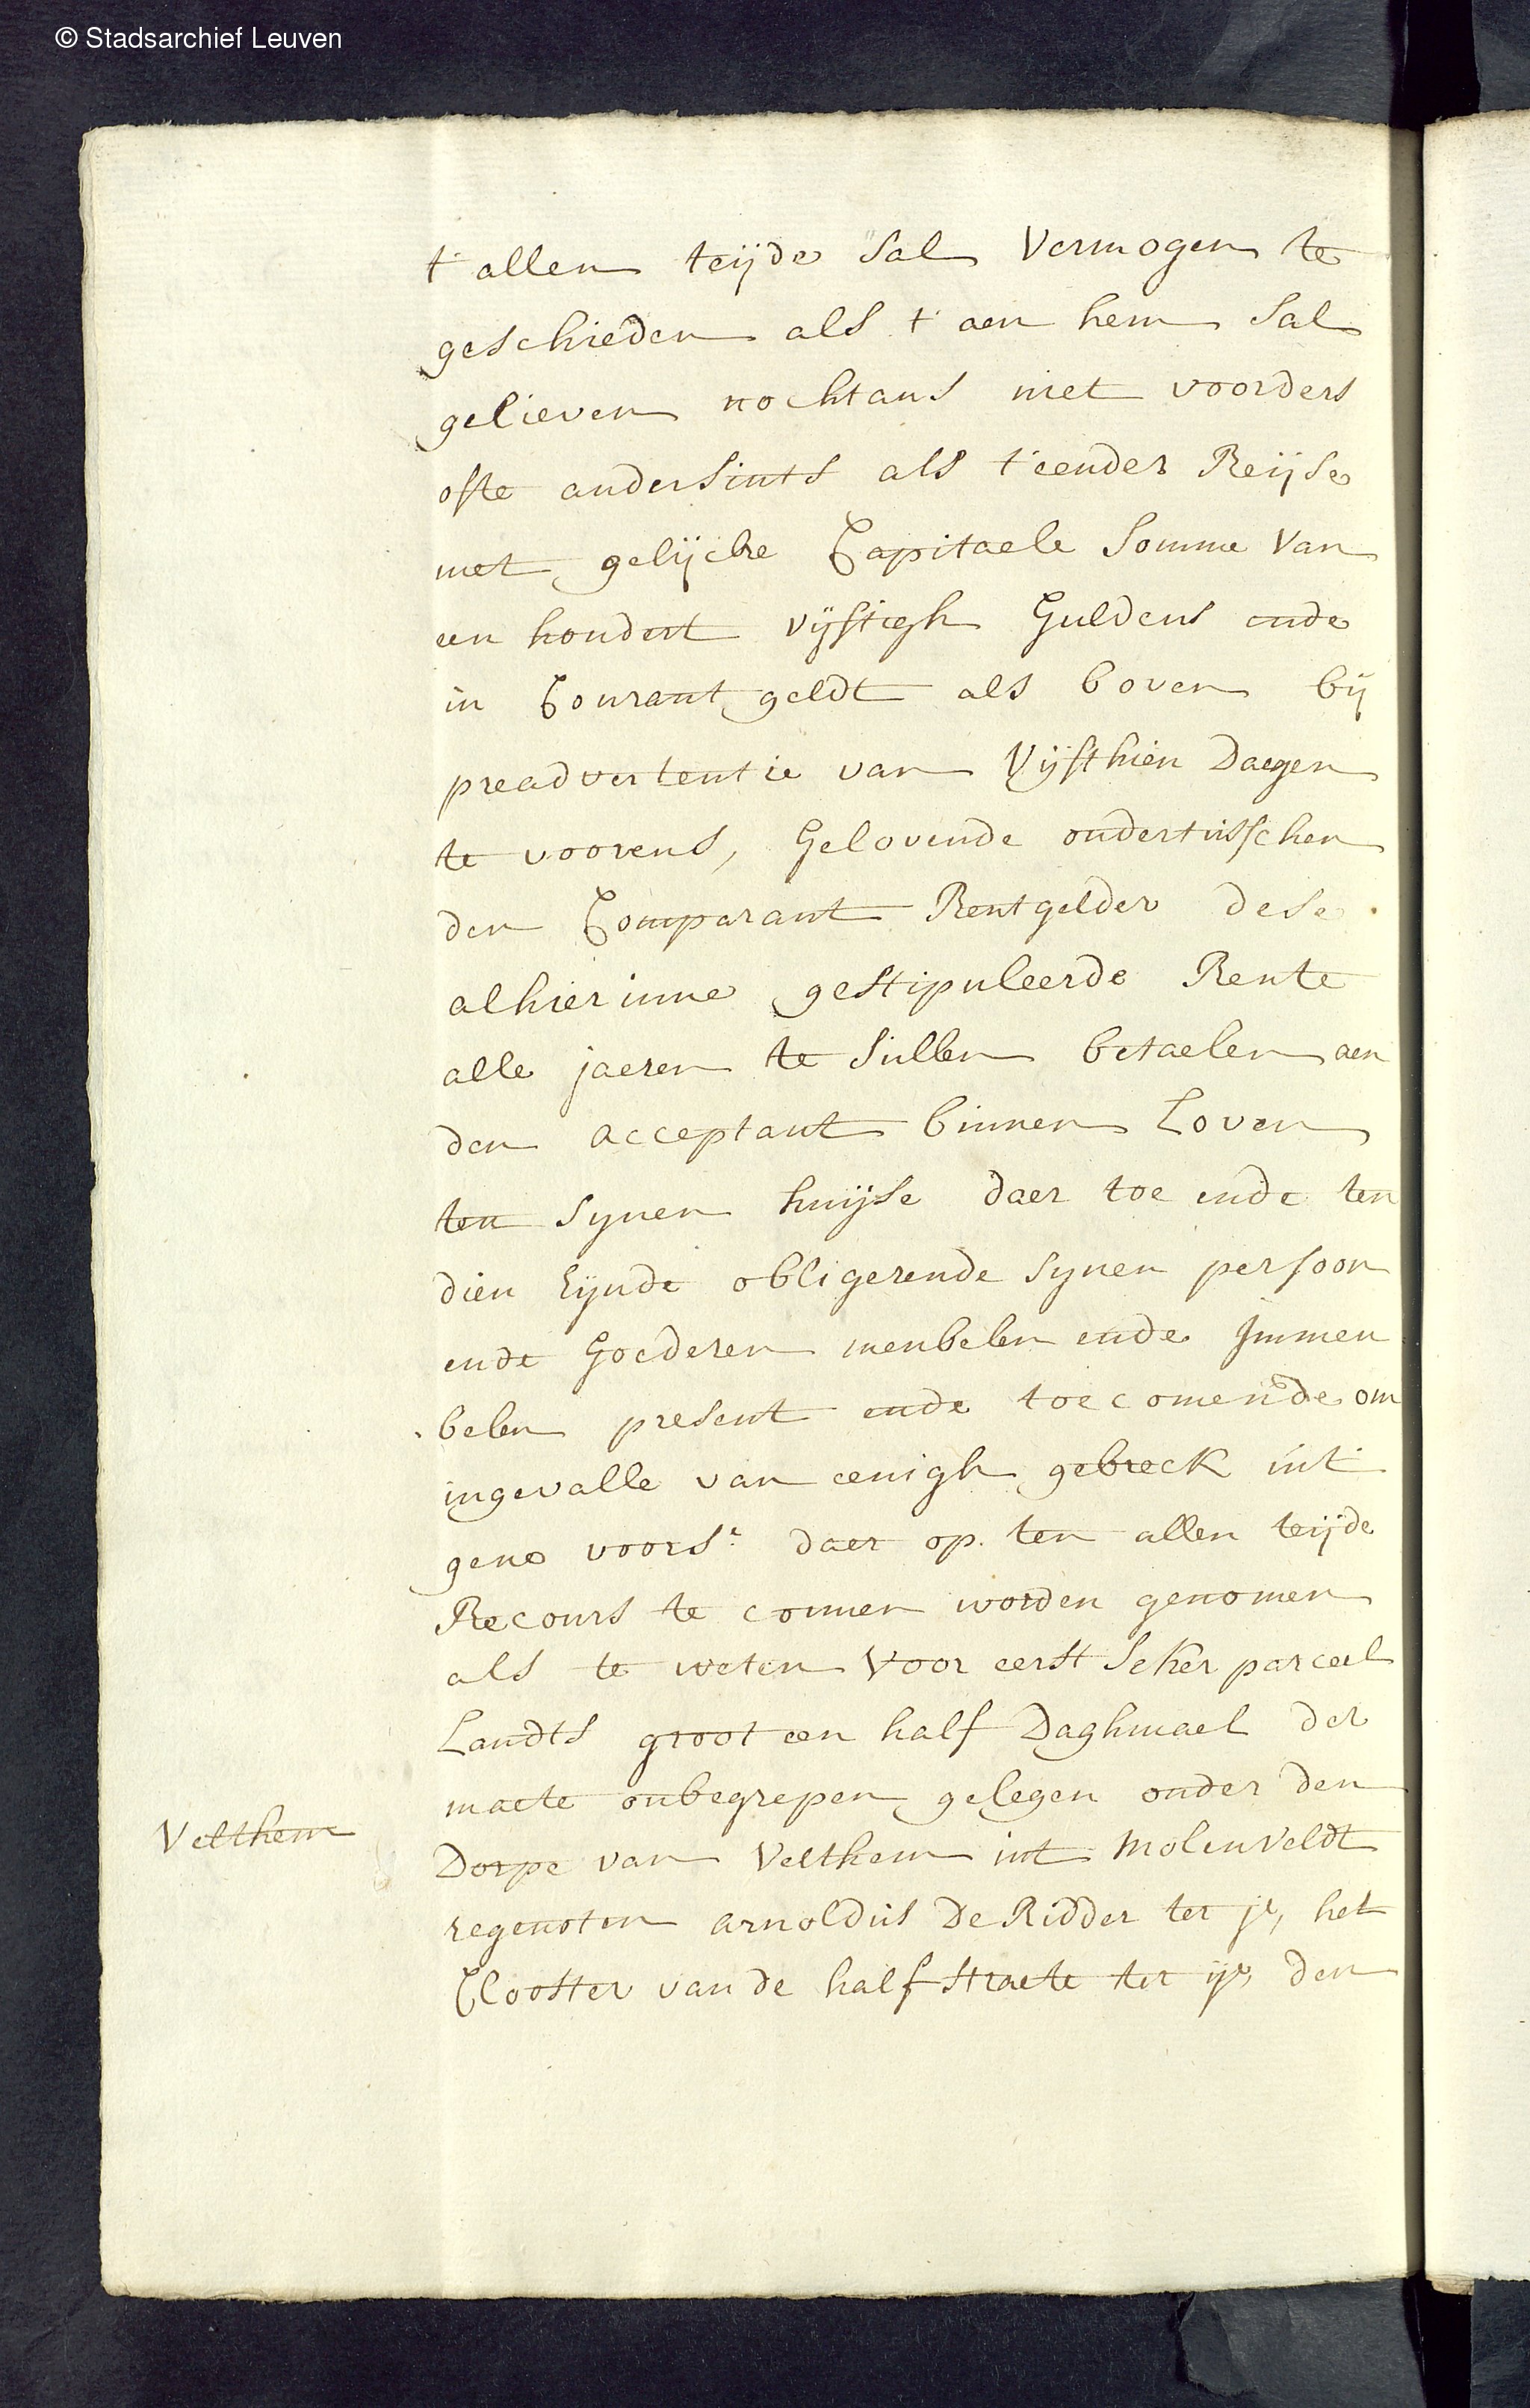 © Stadsarchief Leuven
t' allen teijde sal vermogen te
geschieden als t' aen hem sal
gelieven nochtans niet voorders
ofte andersints als t'eender Reijse
met gelijcke Capitaele somme van
een hondert vijftigh Guldens ende
in Courant geldt als boven bij
preadvertentie van Vijfthien Daegen
te voorens, Gelovende ondertusschen
den Comparant Rentgelder dese
alhierinne gestipuleerde Rente
alle jaeren te sullen betaelen aen
den acceptant binnen Loven
ten synen huijse daer toe ende ten
dien Eijnde obligerende synen persoon
ende Goederen meubelen ende Immeu
belen present ende toecomende om
ingevalle van eenigh gebreck int
gene voors.r daer op ten allen teijde
Recours te connen worden genomen
als te weten voor eerst seker parceel
Landts groot een half Daghmael der
maete onbegrepen gelegen onder den
Velthem
Dorpe van Velthem int Molenveldt
regenoten arnoldus De Ridder ter je, het
Clooster van de half straete ter ije, den